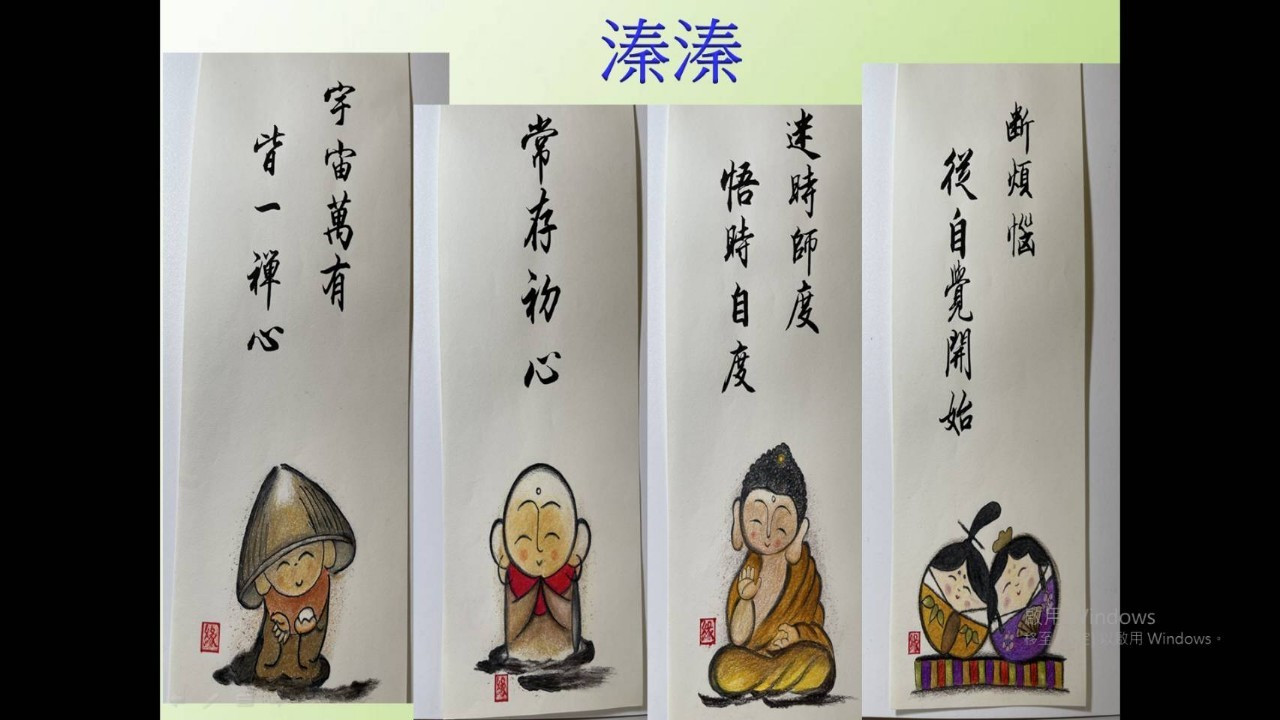 溱溱
宇宙萬有
皆一禪心
常存初心
迷時師度
悟時自度
斷煩惱
從自覺開始
啟用 Windows
移至 以啟用 Windows。